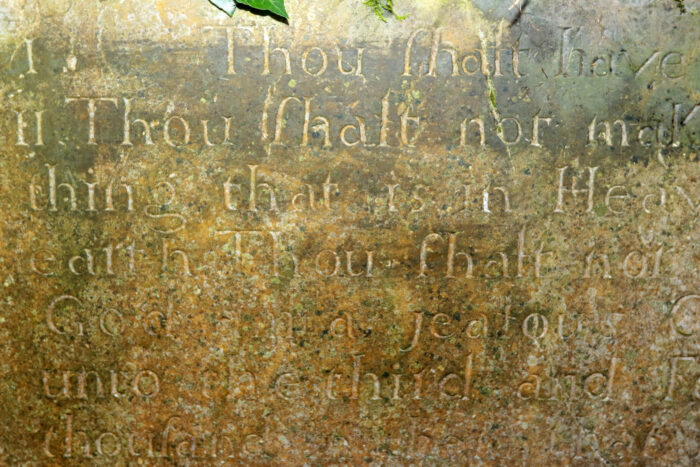 I Thou ſhalt have
II Thou ſhalt not mak
thing that is in Hea
earth Thou ſhalt not
God am a jealous G
unto the third and F
thouſand in them that